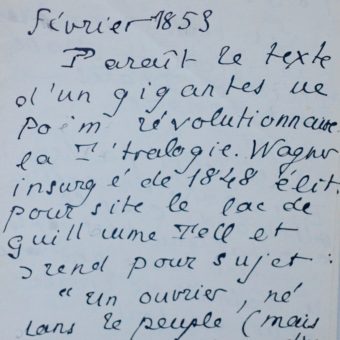 février 1853
Paraît le texte
d'un gigantes ue
Poèm révolutionnaire
la Tétralogie. Wagner
insurgé de 1848 élit
pour site le lac de
guillaume Tell et
prend pour sujet :
" un ouvrier, né
dans le peuple (mais